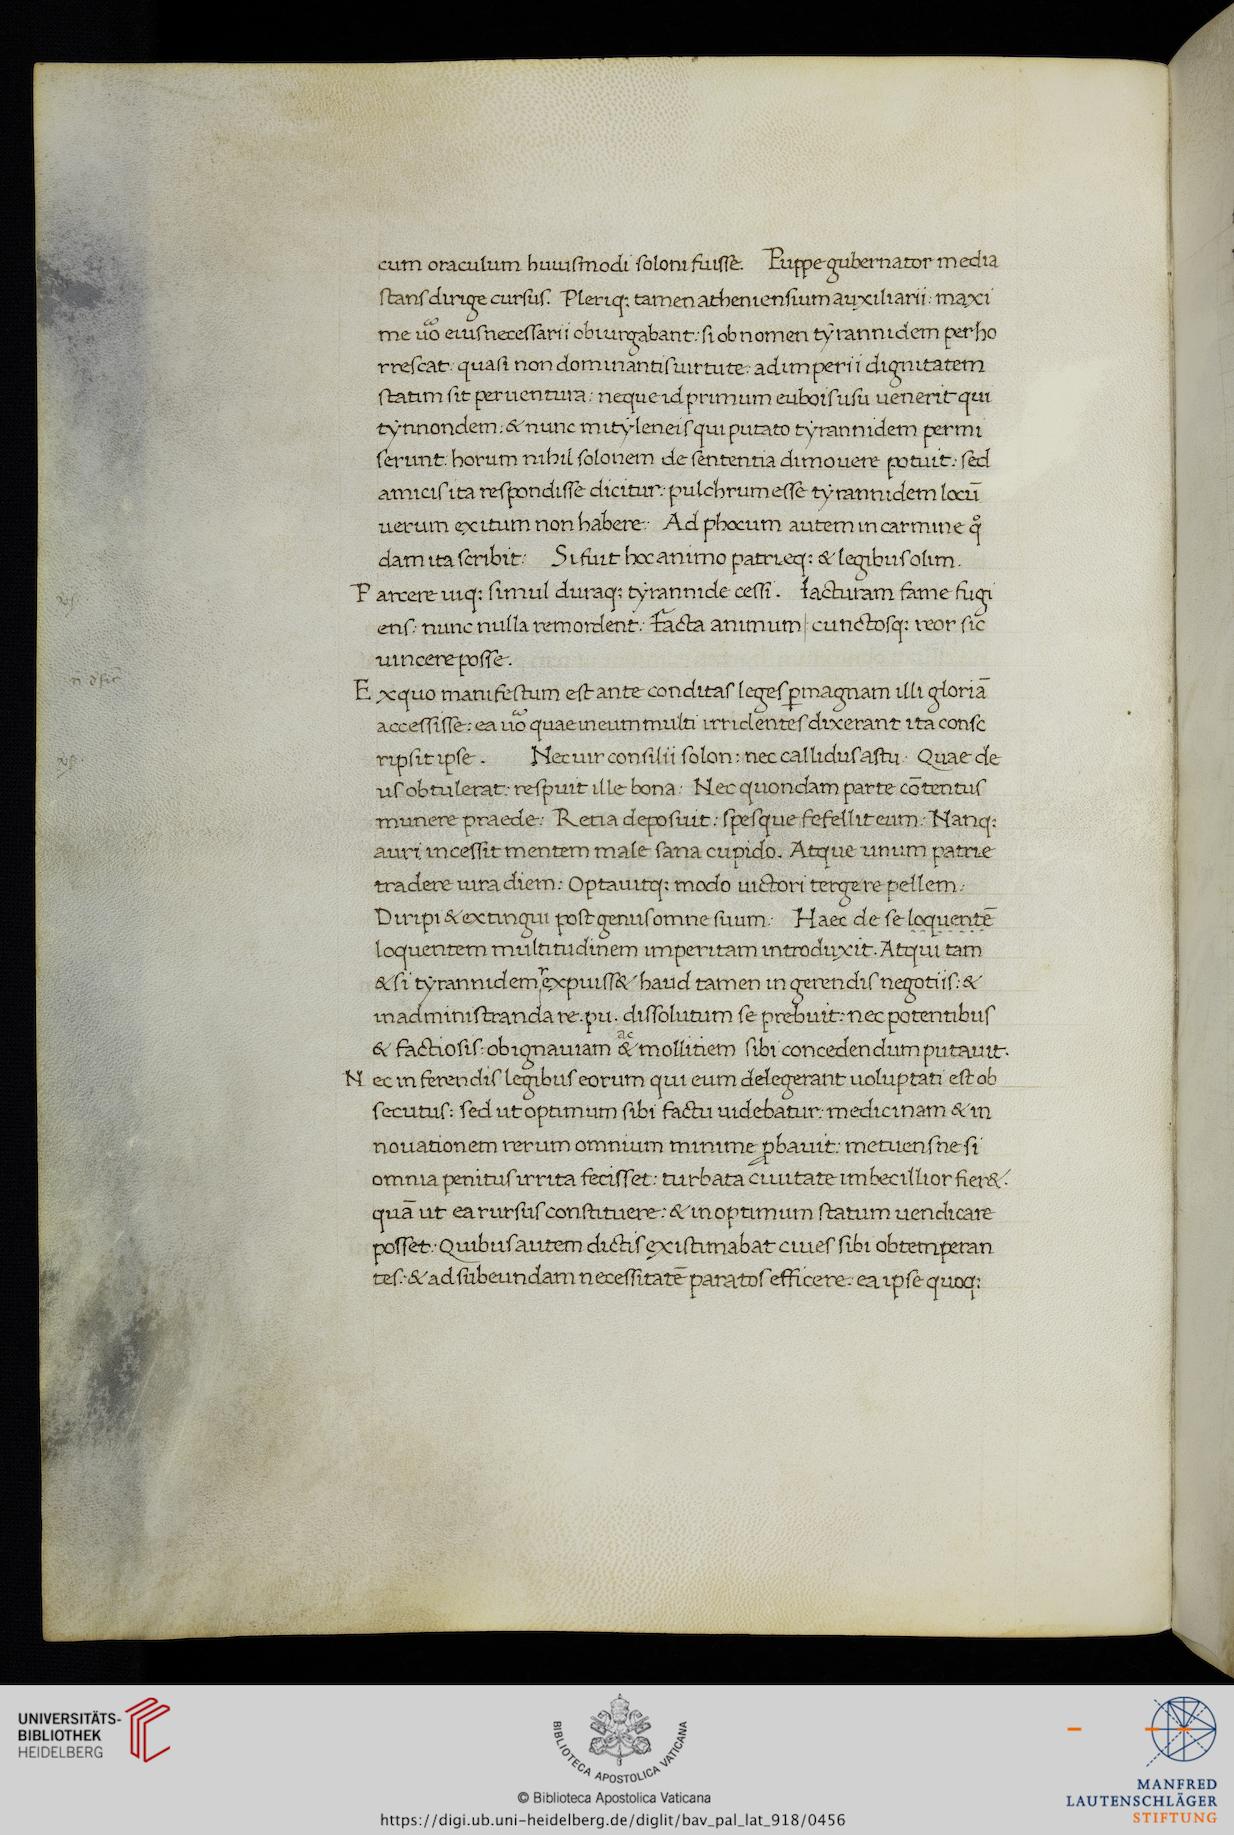 cum oraculum huiusmodi soloni fuisse. Puppe gubernator media
stans dirige cursus. Pleriq; tamen atheniensium auxiliarii: maxi
me uo eius necessarii obiurgabant: si ob nomen tyrannidem perho
rrescat: quasi non dominantis uirtute: ad imperii dignitatem
statim sit peruentura: neque id primum eubois usu uenerit qui
tynnondem: & nunc mityleneis qui putato tyrannidem permi
serunt: horum nihil solonem de sententia dimouere potuit: sed
amicis ita respondisse dicitur: pulchrum esse tyrannidem locū
uerum exitum non habere: Ad phocum autem in carmine qͦ
dam ita scribit: Si fuit hoc animo patrieq; & legibus olim.
Parcere uiq; simul duraq; tyrannide cessi. Iacturam fame fugi
ens: nunc nulla remordent: Facta animum cunctosq; reor sic
uincere posse.
Ex quo manifestum est ante conditas leges ꝑmagnam illi gloriā
accessisse: ea uo quae in eum multi irridentes dixerant ita consc
ripsit ipse. Nec uir consilii solon: nec callidus astu. Quae de
us obtulerat: respuit ille bona: Nec quondam parte cōtentus
munere praede: Retia deposuit: spesque fefellit eum: Nanq;
auri incessit mentem male sana cupido. Atque unum patrie
tradere iura diem: Optauitq; modo uictori tergere pellem:
Diripi & extingui post genus omne suum: Haec de se loquentē
loquentem multitudinem imperitam introduxit. Atqui tam
& si tyrannidem expuiss& haud tamen in gerendis negotiis: &
in administranda re.pu. dissolutum se prebuit: nec potentibus
ac
& factiosis: ob ignauiam & mollitiem sibi concedendum putauit.
Nec in ferendis legibus eorum qui eum delegerant uoluptati est ob
secutus: sed ut optimum sibi factu uidebatur: medicinam & in
nouationem rerum omnium minime ꝓbauit: metuens ne si
omnia penitus irrita fecisset: turbata ciuitate imbecillior fier&:
quā ut ea rursus constituere: & in optimum statum uendicare
posset: Quibus autem dictis existimabat ciues sibi obtemperan
tes: & ad subeundam necessitatē paratos efficere: ea ipse quoq;
UNIVERSITÄTS-
BIBLIOTHEK
HEIDELBERG
BIBLIOTECA APOSTOLICA VATICANA
© Biblioteca Apostolica Vaticana
https://digi.ub.uni-heidelberg.de/diglit/bav_pal_lat_918/0456
MANFRED
LAUTENSCHLÄGER
STIFTUNG